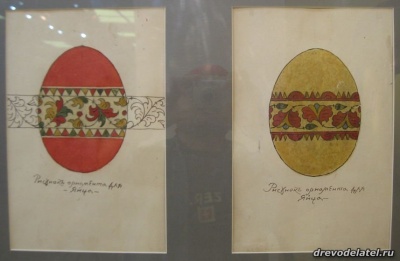 Рисунокъ орнамента для
- Яйца -
Рисунокъ орнамента для
Яйца -
www.drevodelatel.ru